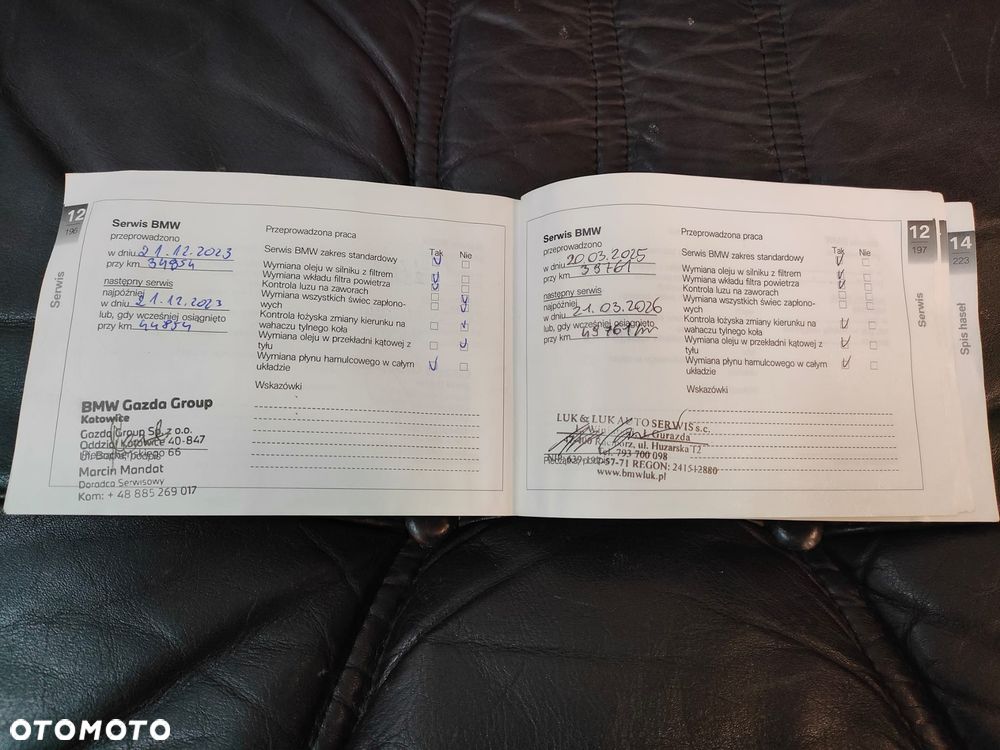 12
196
Serwis
Serwis BMW
przeprowadzono
w dniu 21.12.2023
przy km 34854
następny serwis
najpóźniej
w dniu 21.12.2023
lub, gdy wcześniej osiągnięto
przy km 44854
Przeprowadzona praca
Tak Nie
Serwis BMW zakres standardowy
Wymiana oleju w silniku z filtrem
Wymiana wkładu filtra powietrza
Kontrola luzu na zaworach
Wymiana wszystkich świec zapłono-
wych
Kontrola łożyska zmiany kierunku na
wahaczu tylnego koła
Wymiana oleju w przekładni kątowej z
tyłu
Wymiana płynu hamulcowego w całym
układzie
Wskazówki
BMW Gazda Group
Katowice
Gazda Group Sp. z o.o.
Oddział Katowice 40-847
66
Marcin Mandat
Doradca Serwisowy
Kom: + 48 885 269 017
Serwis BMW
przeprowadzono
w dniu 20.03.2025
przy km 39761
następny serwis
najpóźniej
w dniu 21.03.2026
lub, gdy wcześniej osiągnięto
przy km 49761
Przeprowadzona praca
Tak Nie
Serwis BMW zakres standardowy
Wymiana oleju w silniku z filtrem
Wymiana wkładu filtra powietrza
Kontrola luzu na zaworach
Wymiana wszystkich świec zapłono-
wych
Kontrola łożyska zmiany kierunku na
wahaczu tylnego koła
Wymiana oleju w przekładni kątowej z
tyłu
Wymiana płynu hamulcowego w całym
układzie
Wskazówki
LUK & LUK AUTO SERWIS s.c.
Gurazda
ul. Huzarska 12
Tel. 793 700 098
REGON: 241512880
www.bmwluk.pl
12
197
Serwis
14
223
Spis haseł
OTOMOTO